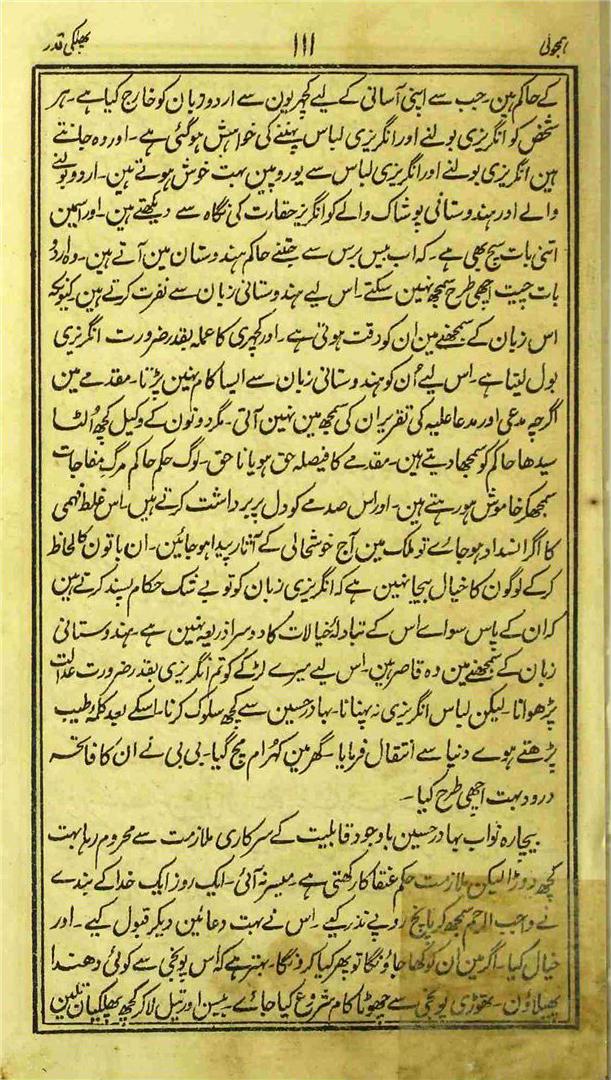 ہمجولی ۱۱۱ پھلکی قدر
کے حاکم ہین۔ جب سے اپنی آسانی کے لیے کچہریون سے اردو زبان کو خارج کیا ہے۔ ہر
شخص کو انگریزی بولنے اور انگریزی لباس پہننے کی خواہش ہو گئی ہے۔ اور وہ جانتے
ہین انگریزی بولنے اور انگریزی لباس سے یوروپین بہت خوش ہوتے ہین۔ اردو بولنے
والے اور ہندوستانی پوشاک والے کو انگریز حقارت کی نگاہ سے دیکھتے ہین۔ اور اسمین
اتنی بات سچ بھی ہے۔ کہ اب بیس برس سے جتنے حاکم ہندوستان مین آتے ہین۔ وہ اردو
بات چیت اچھی طرح سمجھ نہین سکتے۔ اس لیے ہندوستانی زبان سے نفرت کرتے ہین۔ کیونکہ
اس زبان کے سمجھنے مین ان کو دقت ہوتی ہے۔ اور کچہری کا عملہ بقدر ضرورت انگریزی
بول لیتا ہے۔ اس لیے اُن کو ہندوستانی زبان سے ایسا کام نہین پڑتا۔ مقدمے مین
اگرچہ مدعی اور مدعا علیہ کی تقریر ان کی سمجھ مین نہین آتی۔ مگر دونون کے وکیل کچھ اُلٹا
سیدھا حاکم کو سمجھا دیتے ہین۔ مقدمے کا فیصلہ حق ہو یا نا حق۔ لوگ حکم حاکم مرگ مفاجات
سمجھکر خاموش ہو رہتے ہین۔ اور اس صدمے کو دل پر برداشت کرتے ہیں۔ اس غلط فہمی
کا اگر انسداد ہو جاے تو ملک مین آج خوشحالی کے آثار پیدا ہو جائین۔ ان باتون کا لحاظ
کر کے لوگون کا خیال بیجا نہین ہے کہ انگریزی زبان کو تو بے شک حکام پسند کرتے ہین
کہ ان کے پاس سواے اس کے تبادلۂ خیالات کا دوسرا ذریعہ نہین ہے۔ ہندوستانی
زبان کے سمجھنے مین وہ قاصر ہین۔ اس لیے میرے لڑکے کو تم انگریزی بقدر ضرورت عدالت
پڑھوانا۔ لیکن لباس انگریزی نہ پہنانا۔ بہادر حسین سے کچھ سلوک کرنا۔ اسکے بعد کلمۂ طیب
پڑھتے ہوے دنیا سے انتقال فرمایا۔ گھر مین کہرام مچ گیا۔ بی بی نے ان کا فاتحہ
درود بہت اچھی طرح کیا۔
بیچارہ نواب بہادر حسین باوجود قابلیت کے سرکاری ملازمت سے محروم رہا بہت
کچھ دوڑا لیکن ملازمت حکم عنقا کا رکھتی ہے۔ میسر نہ آئی۔ ایک روز ایک خدا کے بندے
نے واجب الرحم سمجھ کر پانچ روپے نذر کیے۔ اس نے بہت دعائین دیکر قبول کیے۔ اور
خیال کیا۔ اگر مین ان کو کھا جاؤنگا تو پھر کیا کرونگا۔ بہتر ہے کہ اس پونجی سے کوئی دھندا
پھیلاؤن۔ تھوڑی پونجی سے چھوٹا کام شروع کیا جاے۔ بیسن اور تیل لا کر کچھ پھلکیان تلین